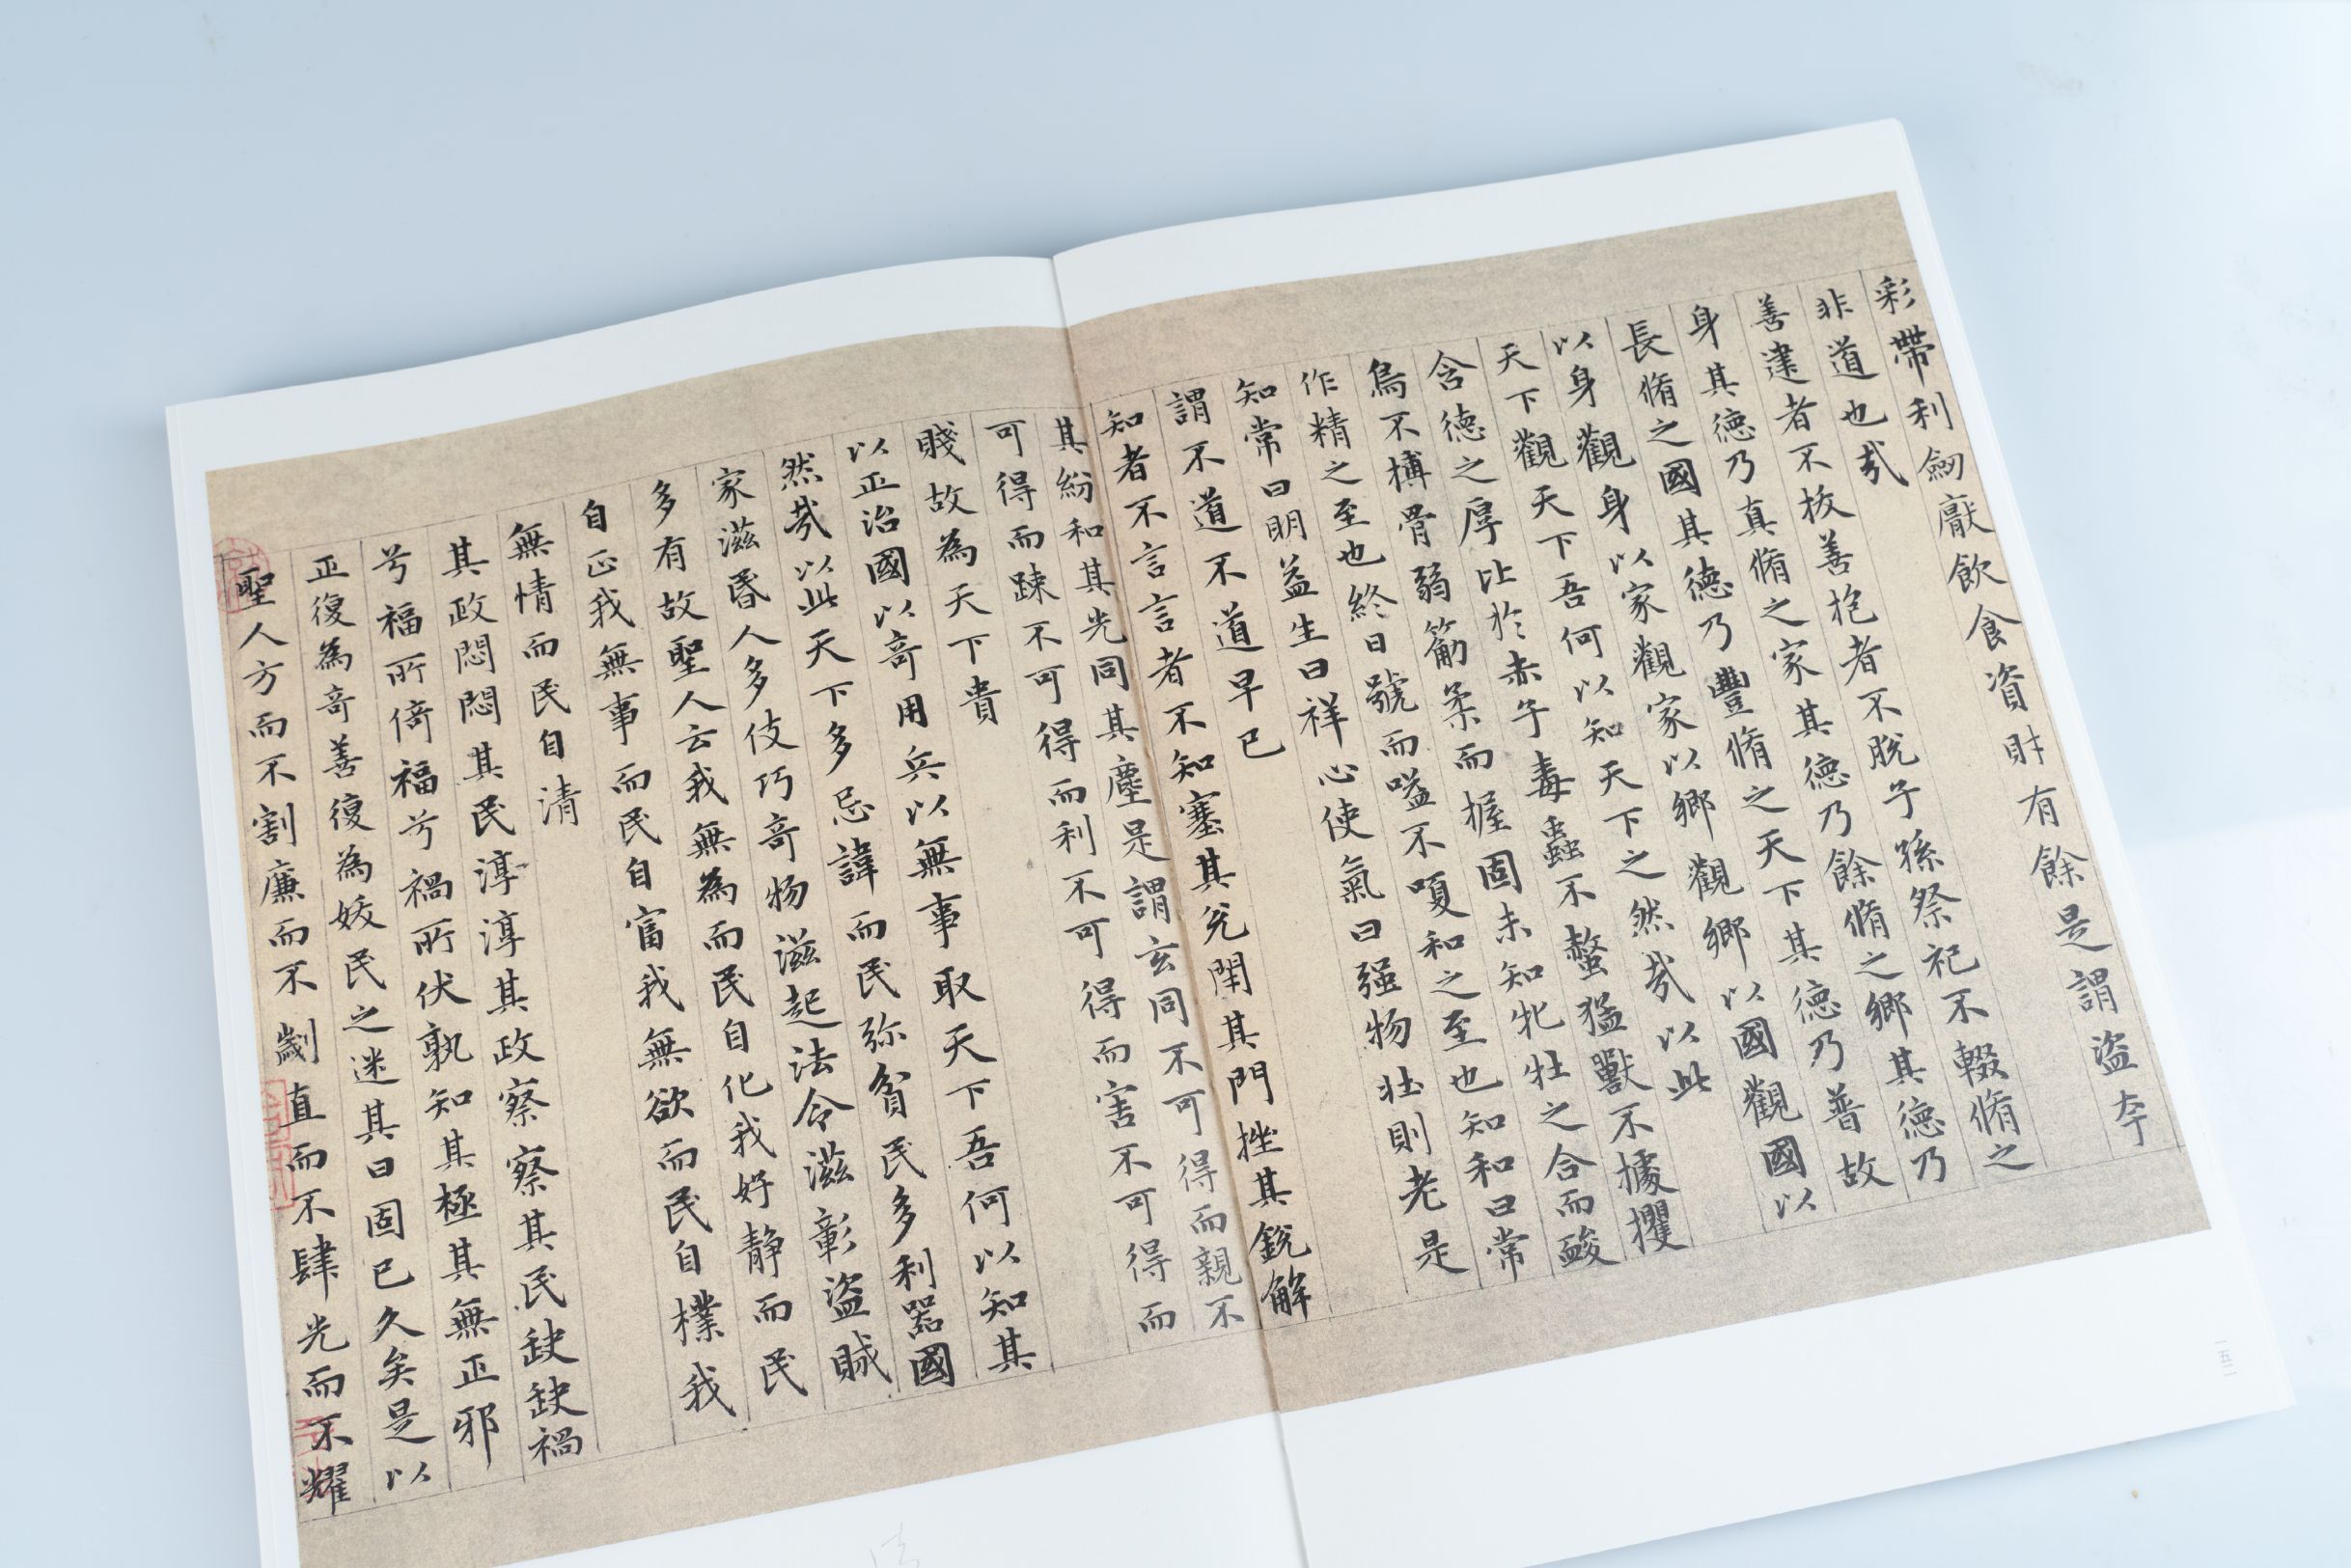 彩帶利劒厭飲食資財有餘是謂盜夸
非道也㢤
善建者不拔善抱者不脫子孫祭祀不輟脩之
身其德乃真脩之家其德乃餘脩之鄉其德乃
長脩之國其德乃豐脩之天下其德乃普故
以身觀身以家觀家以鄉觀鄉以國觀國以
天下觀天下吾何以知天下之然㢤以此
含德之厚比於赤子毒蟲不螫猛獸不據攫
鳥不搏骨弱筋柔而握固未知牝牡之合而䘒
作精之至也終日號而嗌不嗄和之至也知和曰常
知常曰明益生曰祥心使氣曰强物壯則老是
謂不道不道早已
知者不言言者不知塞其兌閉其門挫其銳解
其紛和其光同其塵是謂玄同不可得而親不
可得而踈不可得而利不可得而害不可得而
賤故為天下貴
以正治國以竒用兵以無事取天下吾何以知其
然㢤以此天下多忌諱而民弥貧民多利器國
家滋昏人多伎巧竒物滋起法令滋彰盜賊
多有故聖人云我無為而民自化我好静而民
自正我無事而民自富我無欲而民自樸我
無情而民自清
其政悶悶其民淳淳其政察察其民缺缺禍
兮福所倚福兮禍所伏孰知其極其無正邪
正復為竒善復為妖民之迷其日固已久矣是以
聖人方而不割廉而不劌直而不肆光而不耀
一五二